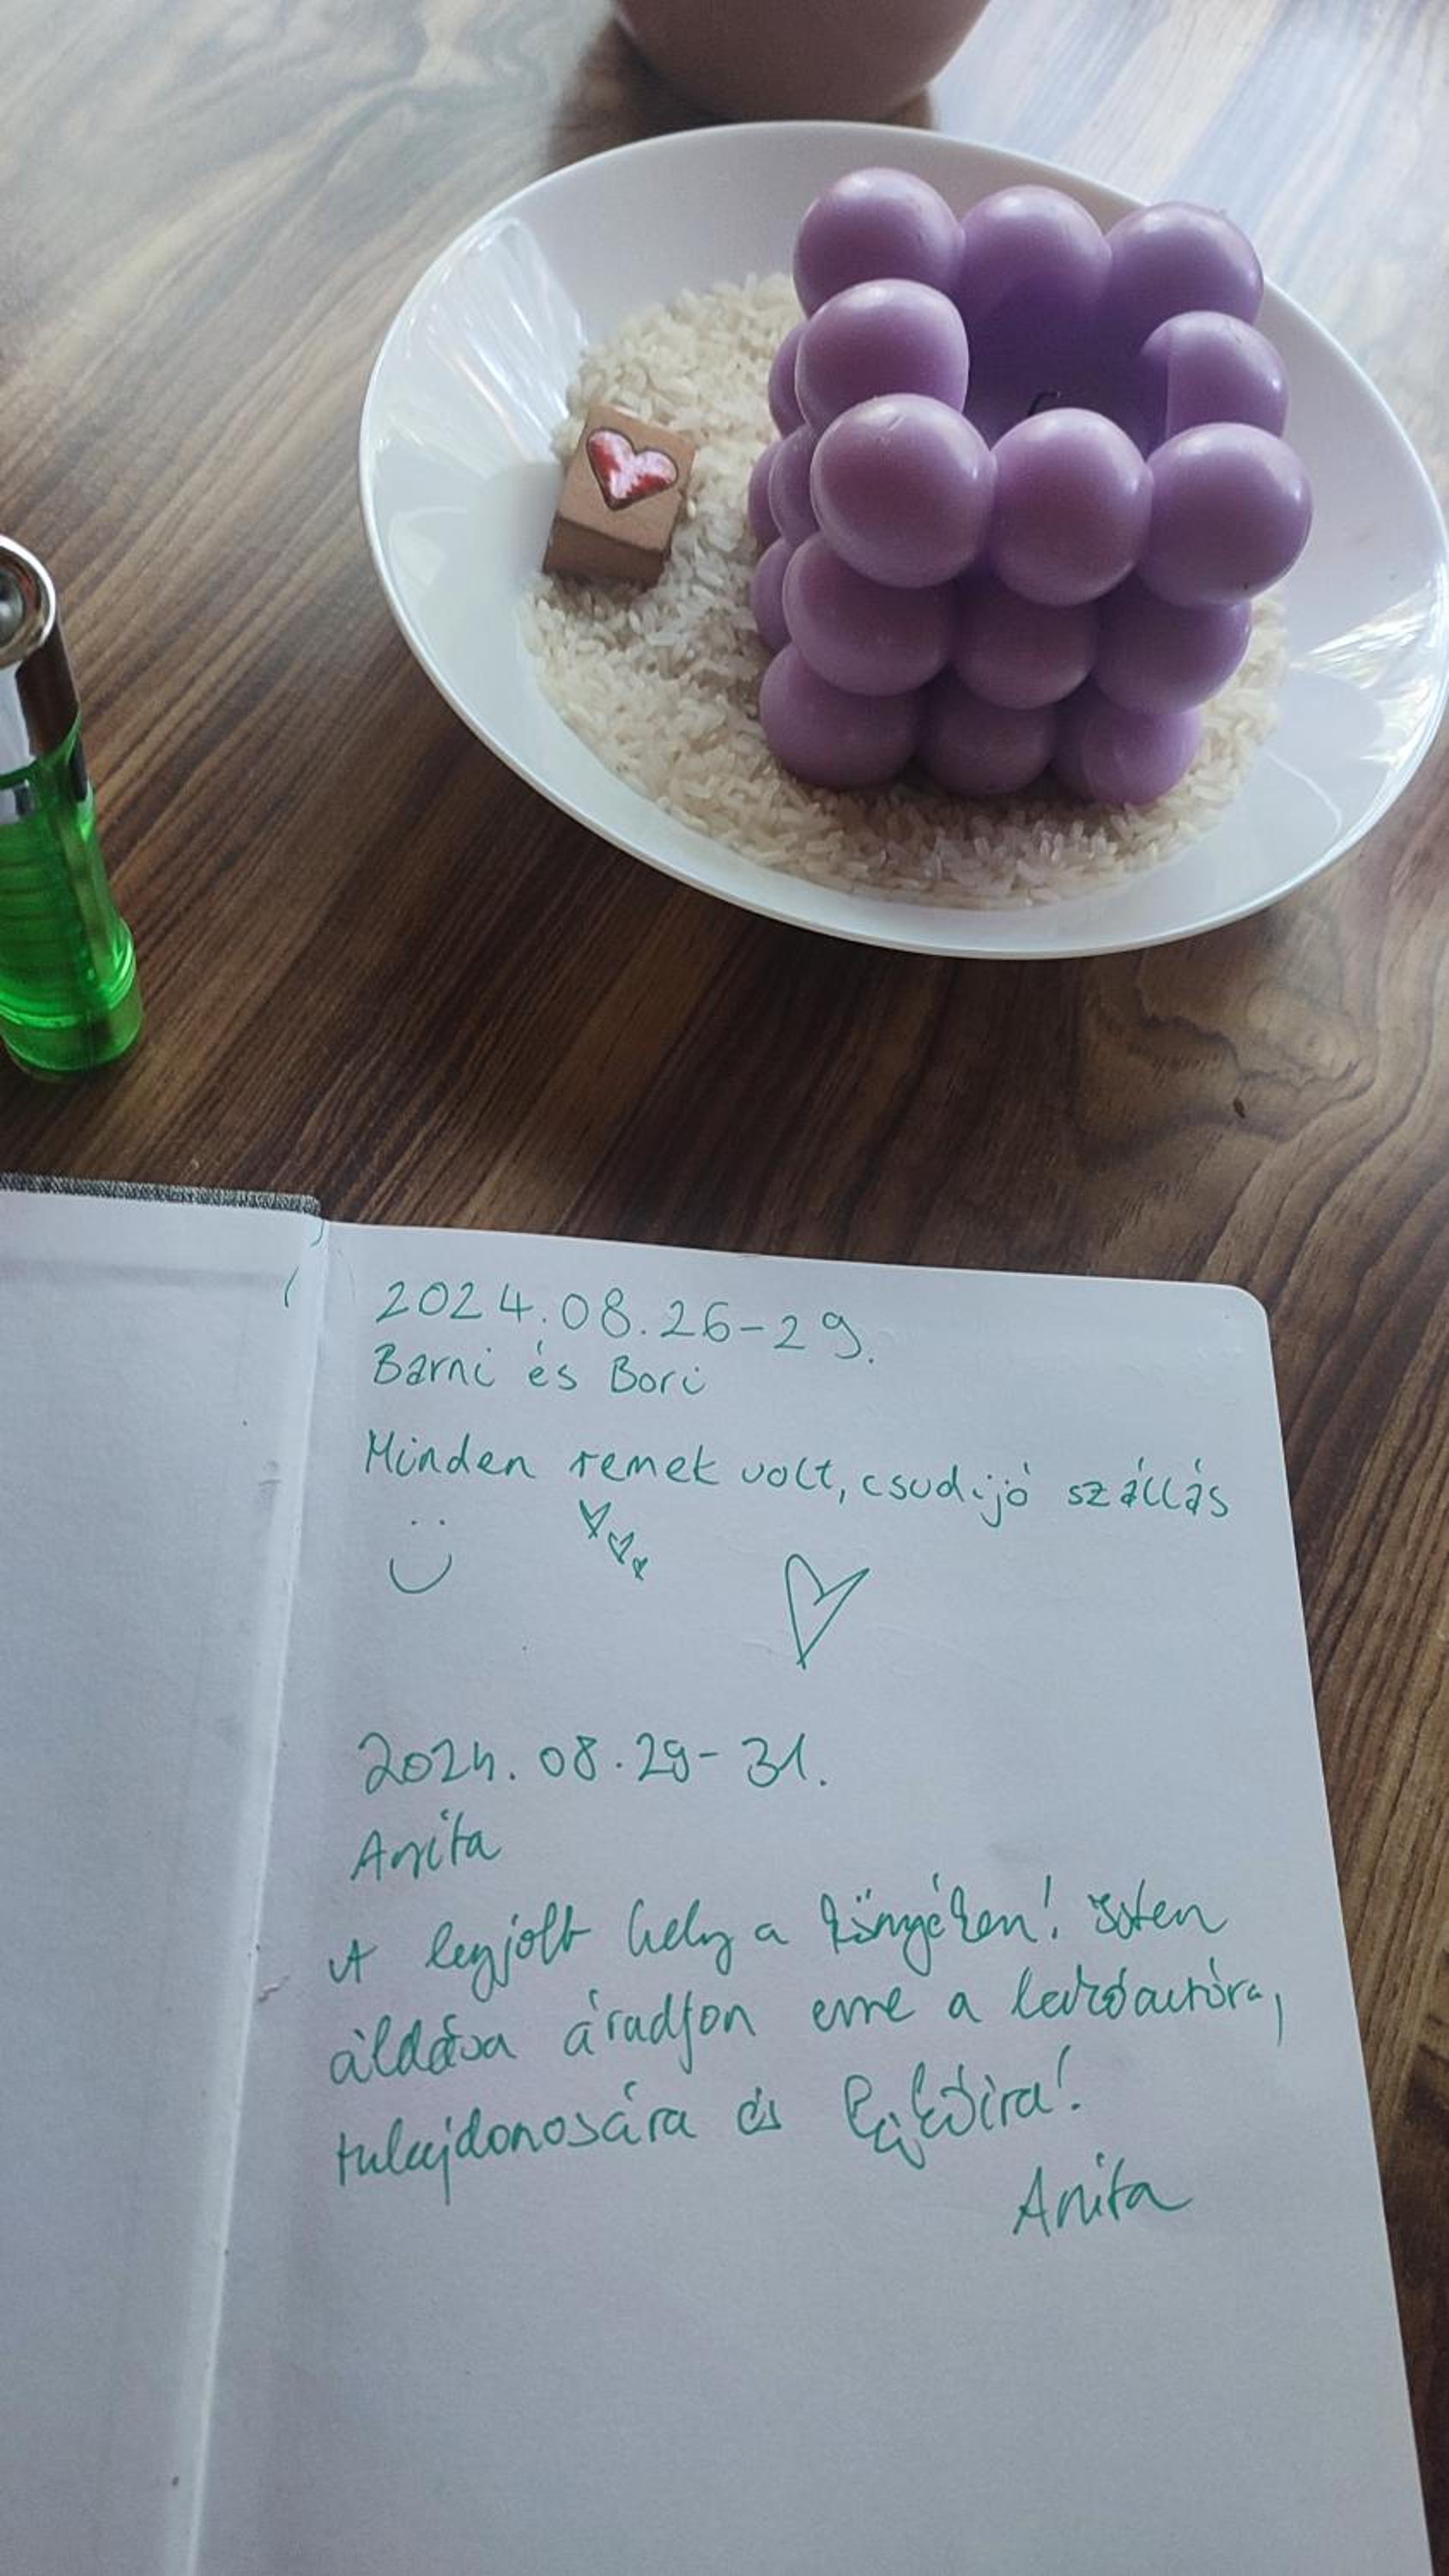 2024.08.26-29.
Barni és Bori
Minden remek volt, csudijó szállás
2024.08.29-31.
Anita
A legjobb hely a környéken! Isten
áldása áradjon erre a lakóautóra,
tulajdonosára és lakóira!
Anita